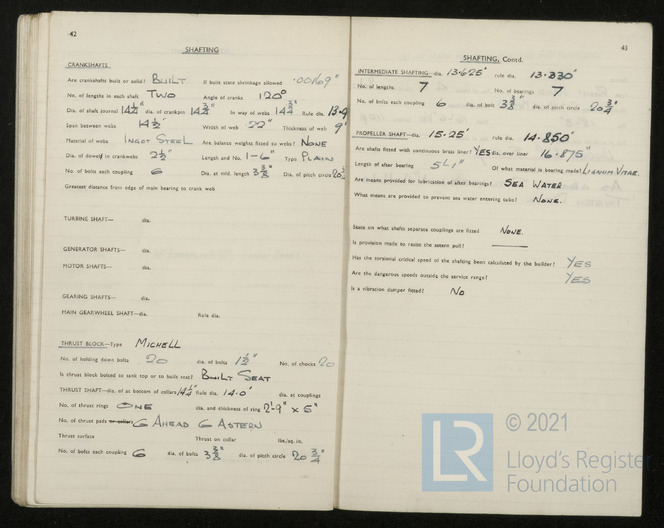 42
SHAFTING
CRANKSHAFTS
Are crankshafts built or solid? BUILT If built state shrinkage allowed
No. of lengths in each shaft TWO Angle of cranks 120°
Dia. of shaft journal 14¼" dia. of crankpin 14¾" In way of webs 14¾" Rule dia.
Span between webs 14½" Width of web 22" Thickness of web 9"
Material of webs INGOT STEEL Are balance weights fitted to webs? NONE
Dia. of dowels in crankwebs 2½" Length and No. 1-6" Type PLAIN
No. of bolts each coupling 6 Dia. at mid. length 3⅜" Dia. of pitch circle
Greatest distance from edge of main bearing to crank web
TURBINE SHAFT— dia.
GENERATOR SHAFTS— dia.
MOTOR SHAFTS— dia.
GEARING SHAFTS— dia.
MAIN GEARWHEEL SHAFT—dia. Rule dia.
THRUST BLOCK—Type MICHELL
No. of holding down bolts 20 dia. of bolts 1½" No. of chocks 20
Is thrust block bolted to tank top or to built seat? BUILT SEAT
THRUST SHAFT—dia. of at bottom of collars 14¼" Rule dia. 14.0" dia. at couplings
No. of thrust rings ONE dia. and thickness of ring 2'-9" x 5"
No. of thrust pads or collars 6 AHEAD 6 ASTERN
Thrust surface Thrust on collar lbs./sq. in.
No. of bolts each coupling 6 dia. of bolts 3⅜" dia. of pitch circle 20¾"
43
SHAFTING, Contd.
INTERMEDIATE SHAFTING—dia. 13.625" rule dia. 13.330"
No. of lengths 7 No. of bearings 7
No. of bolts each coupling 6 dia. of bolt 3⅜" dia. of pitch circle 20¾"
PROPELLER SHAFT—dia. 15.25" rule dia. 14.850"
Are shafts fitted with continuous bronze liner? YES dia. over liner 16.875"
Length of after bearing 5'-1" Of what material is bearing made? LIGNUM VITAE.
Are means provided for lubrication of after bearings? SEA WATER
What means are provided to prevent sea water entering tube? NONE.
State on what shafts separate couplings are fitted NONE.
Is provision made to rotate the astern pull? —
Has the torsional critical speed of the shafting been calculated by the builder? YES
Are the dangerous speeds outside the service range? YES
Is a vibration damper fitted? NO
LR
© 2021
Lloyd's Register
Foundation